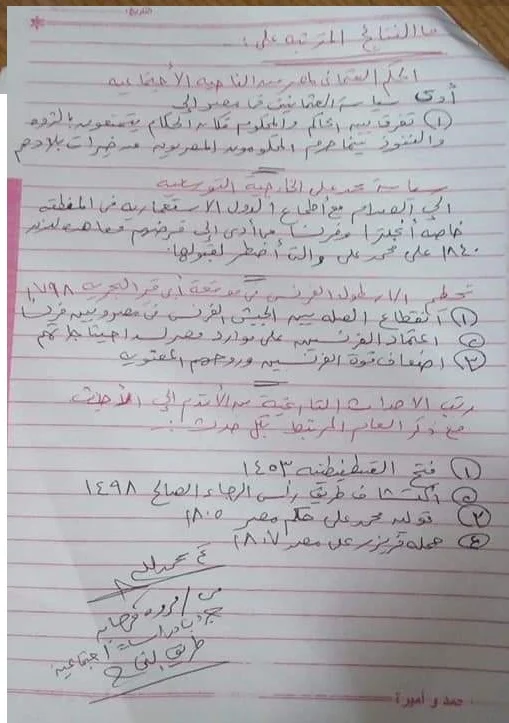 التاريخ:
ما النتائج المترتبه على :-
الحكم العثمانى لمصر من الناحية الأجتماعيه
أدت سياسة العثمانيين فى مصر الى
① تفرقه بين الحاكم والمحكوم فكان الحكام يتمتعون بالثروه
والنفوذ بينما حرم المحكومون المصريون من خيرات بلادهم
سياسة محمد على الخارجية التوسعيه
الى الصدام مع اطماع الدول الاستعماريه فى المنطقه
خاصه أنجلترا وفرنسا مما أدى إلى فرضهم معاهده لندن
١٨٤٠ على محمد على والتى أضطر لقبولها
تحطم الاسطول الفرنسى فى موقعة أبى قير البحريه ١٧٩٨
① انقطاع الصله بين الجيش الفرنسى فى مصر وبين فرنسا
② اعتماد الفرنسيين على موارد مصر لسد احتياجاتهم
③ اضعاف قوة الفرنسيين وروحهم المعنويه
رتب الاحداث التاريخية من الأقدم الى الأحدث
مع ذكر العام المرتبط بكل حدث :-
① فتح القسطنطينيه ١٤٥٣
② أكتشاف طريق رأس الرجاء الصالح ١٤٩٨
③ توليه محمد على حكم مصر ١٨٠٥
④ حمله فريزر على مصر ١٨٠٧
م / مروه
دراسات اجتماعية
طريق النجاح
حمد و أميرة